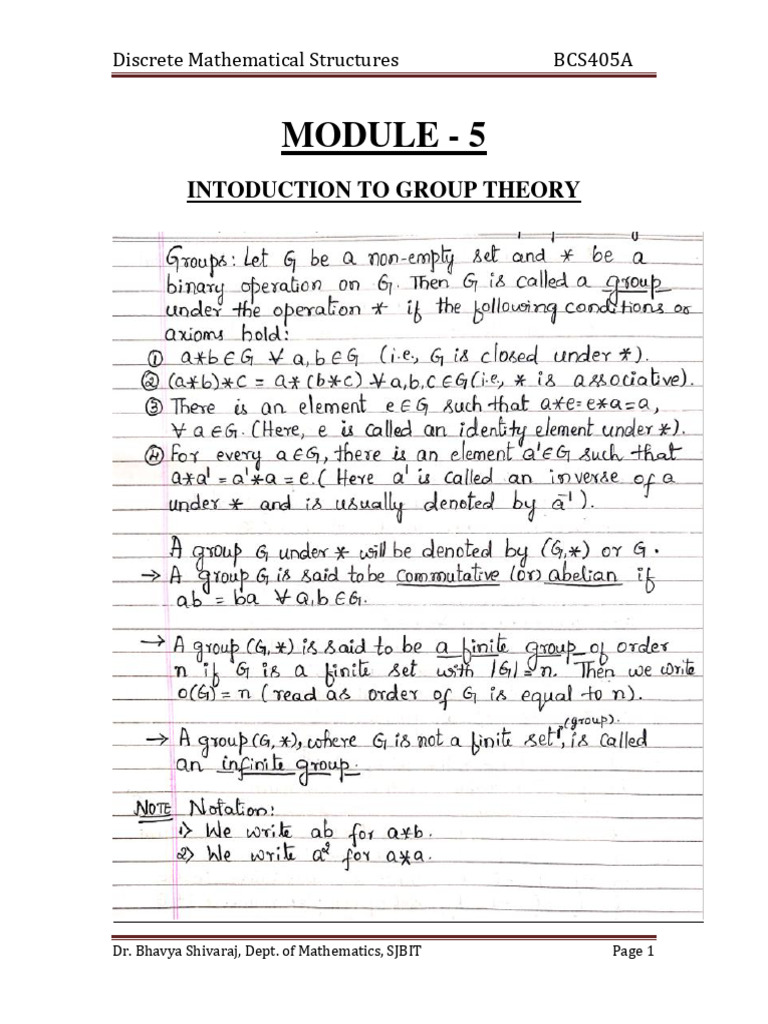 Discrete Mathematical Structures BCS405A
MODULE - 5
INTODUCTION TO GROUP THEORY
Groups: Let G be a non-empty set and * be a
binary operation on G. Then G is called a group
under the operation * if the following conditions or
axioms hold:
① a*b∈G ∀ a,b∈G (i.e., G is closed under *).
② (a*b)*c = a*(b*c) ∀a,b,c∈G(i.e., * is associative).
③ There is an element e∈G such that a*e=e*a=a,
∀ a∈G. (Here, e is called an identity element under *).
④ For every a∈G, there is an element a'∈G such that
a*a' = a'*a = e. (Here a' is called an inverse of a
under * and is usually denoted by a⁻¹).
A group G under * will be denoted by (G,*) or G.
→ A group G is said to be commutative (or) abelian if
ab = ba ∀ a,b∈G.
→ A group (G,*) is said to be a finite group of order
n if G is a finite set with |G|=n. Then we write
o(G)=n (read as order of G is equal to n).
(group).
→ A group (G,*), where G is not a finite set, is called
an infinite group.
NOTE Notation:
1) We write ab for a*b.
2) We write a² for a*a.
Dr. Bhavya Shivaraj, Dept. of Mathematics, SJBIT Page 1